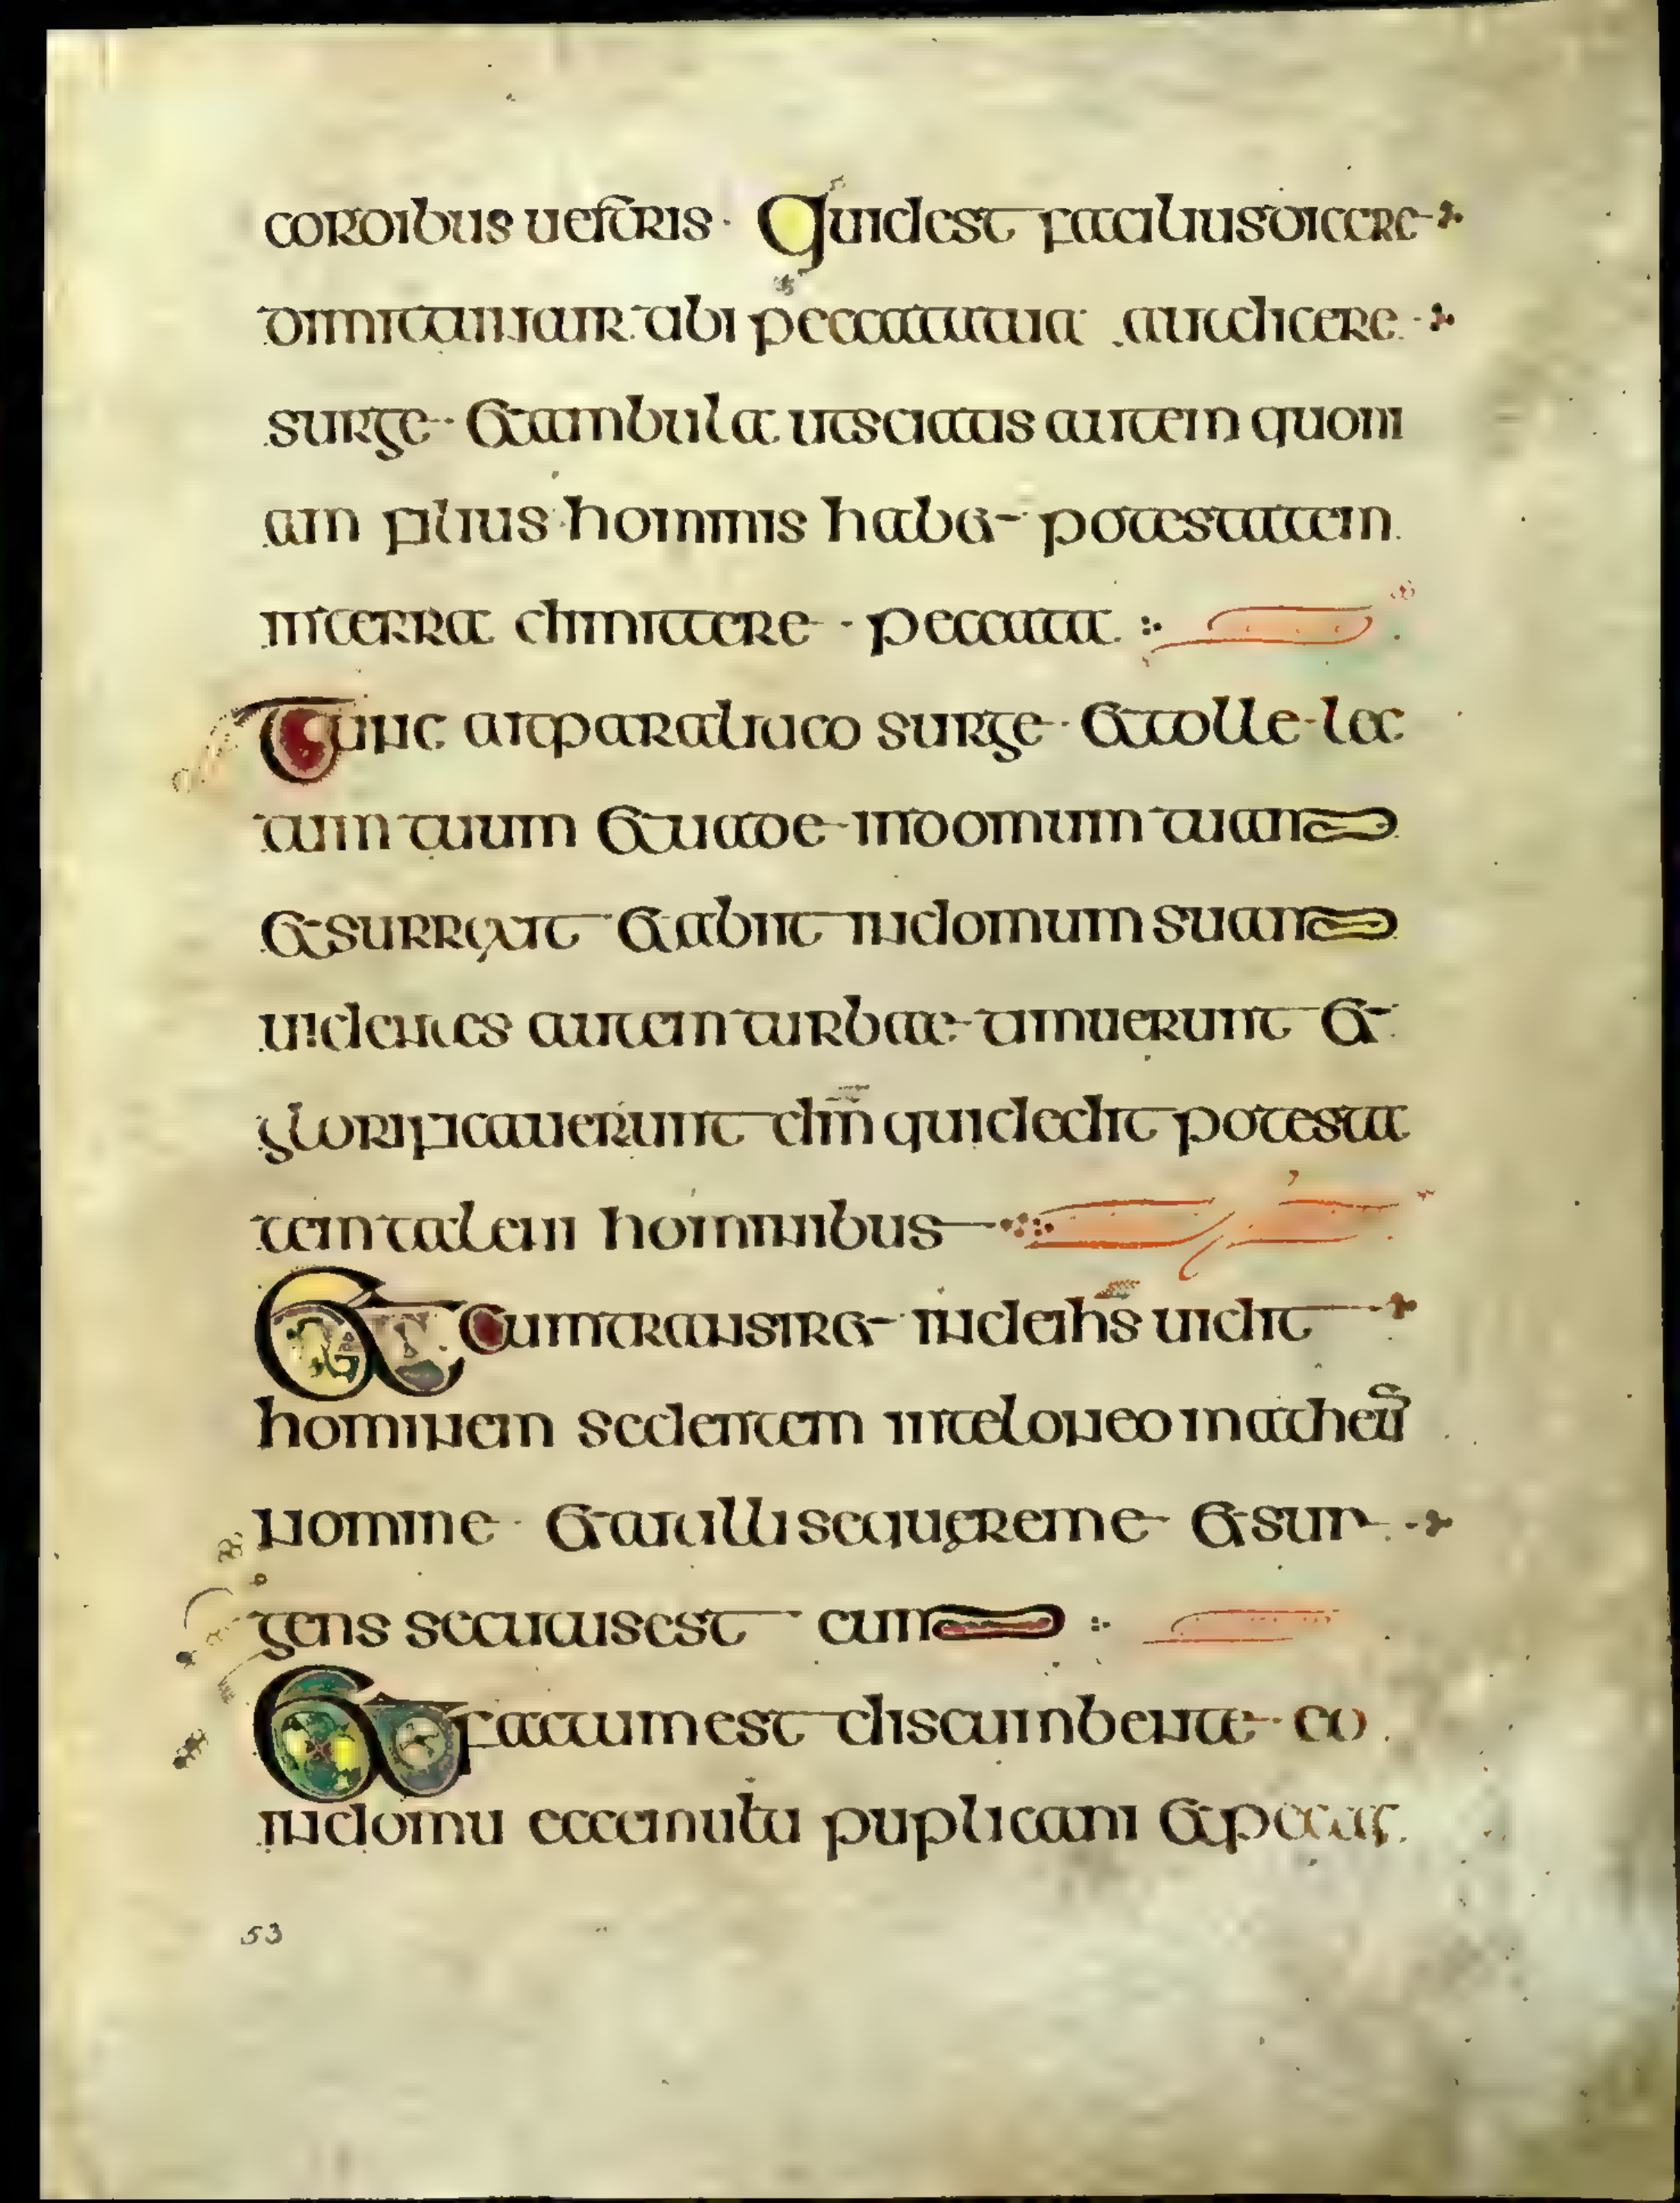 cordibus uestris · Quid est facilius dicere
dimittantur tibi peccata tua aut dicere
surge · et ambula ut sciatis autem quoni
am filius hominis habet potestatem
in terra dimittere · peccata :
Tunc ait paralitico surge · et tolle lec
tum tuum et uade in domum tuam
et surrexit et abiit in domum suam
uidentes autem turbae timuerunt et
glorificauerunt dm̅ qui dedit potesta
tem talem hominibus
Et cum transiret inde ihs̅ uidit
hominem sedentem in teloneo matheu̅
nomine · et ait illi sequere me et sur
gens secutus est eum :
Et factum est discumbente · eo
in domu ecce multi puplicani et peccat
53